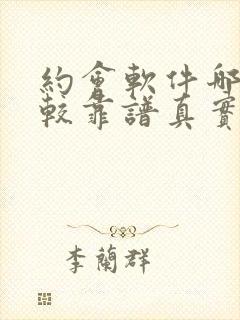 約會軟件哪
較靠譜真實
李蘭群